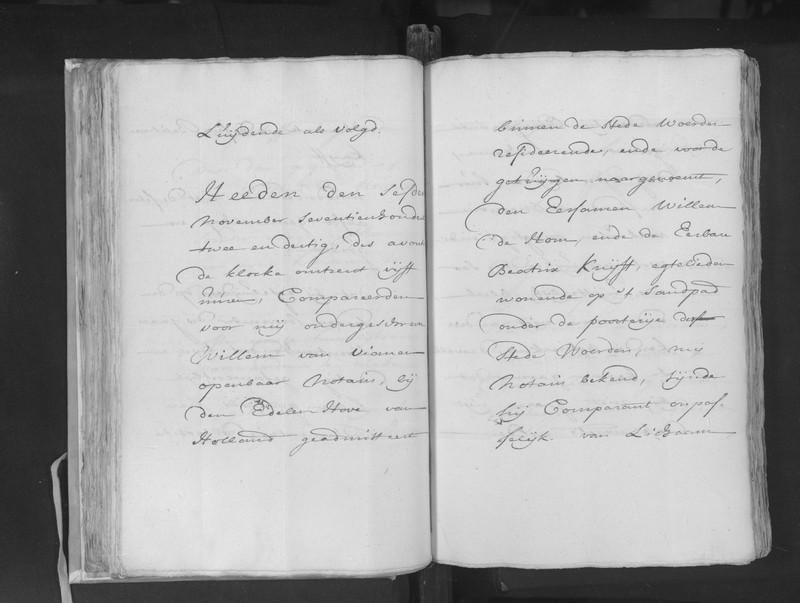 Luijdende als volgd.
Heeden den sesde
November seventienhonder
twee en dertig, des avont
de klocke omtrent vijff
uuren, Compareerden
voor mij ondergeschreve
Willem van Vianen
openbaar Notaris, bij
den Edelen Hove van
Holland geadmitteert
binnen de stede Woerden
resideerende, ende voor de
getuijgen naargenoemt,
den Eersamen Willem
de Hom, ende de Eerbare
Beatrix Kruijff, egtelieden
wonende op 't Sandpad
onder de poorterije deser
stede Woerden, mij
Notaris bekend, sijnde
hij Comparant onpas-
selijk van Lichaam